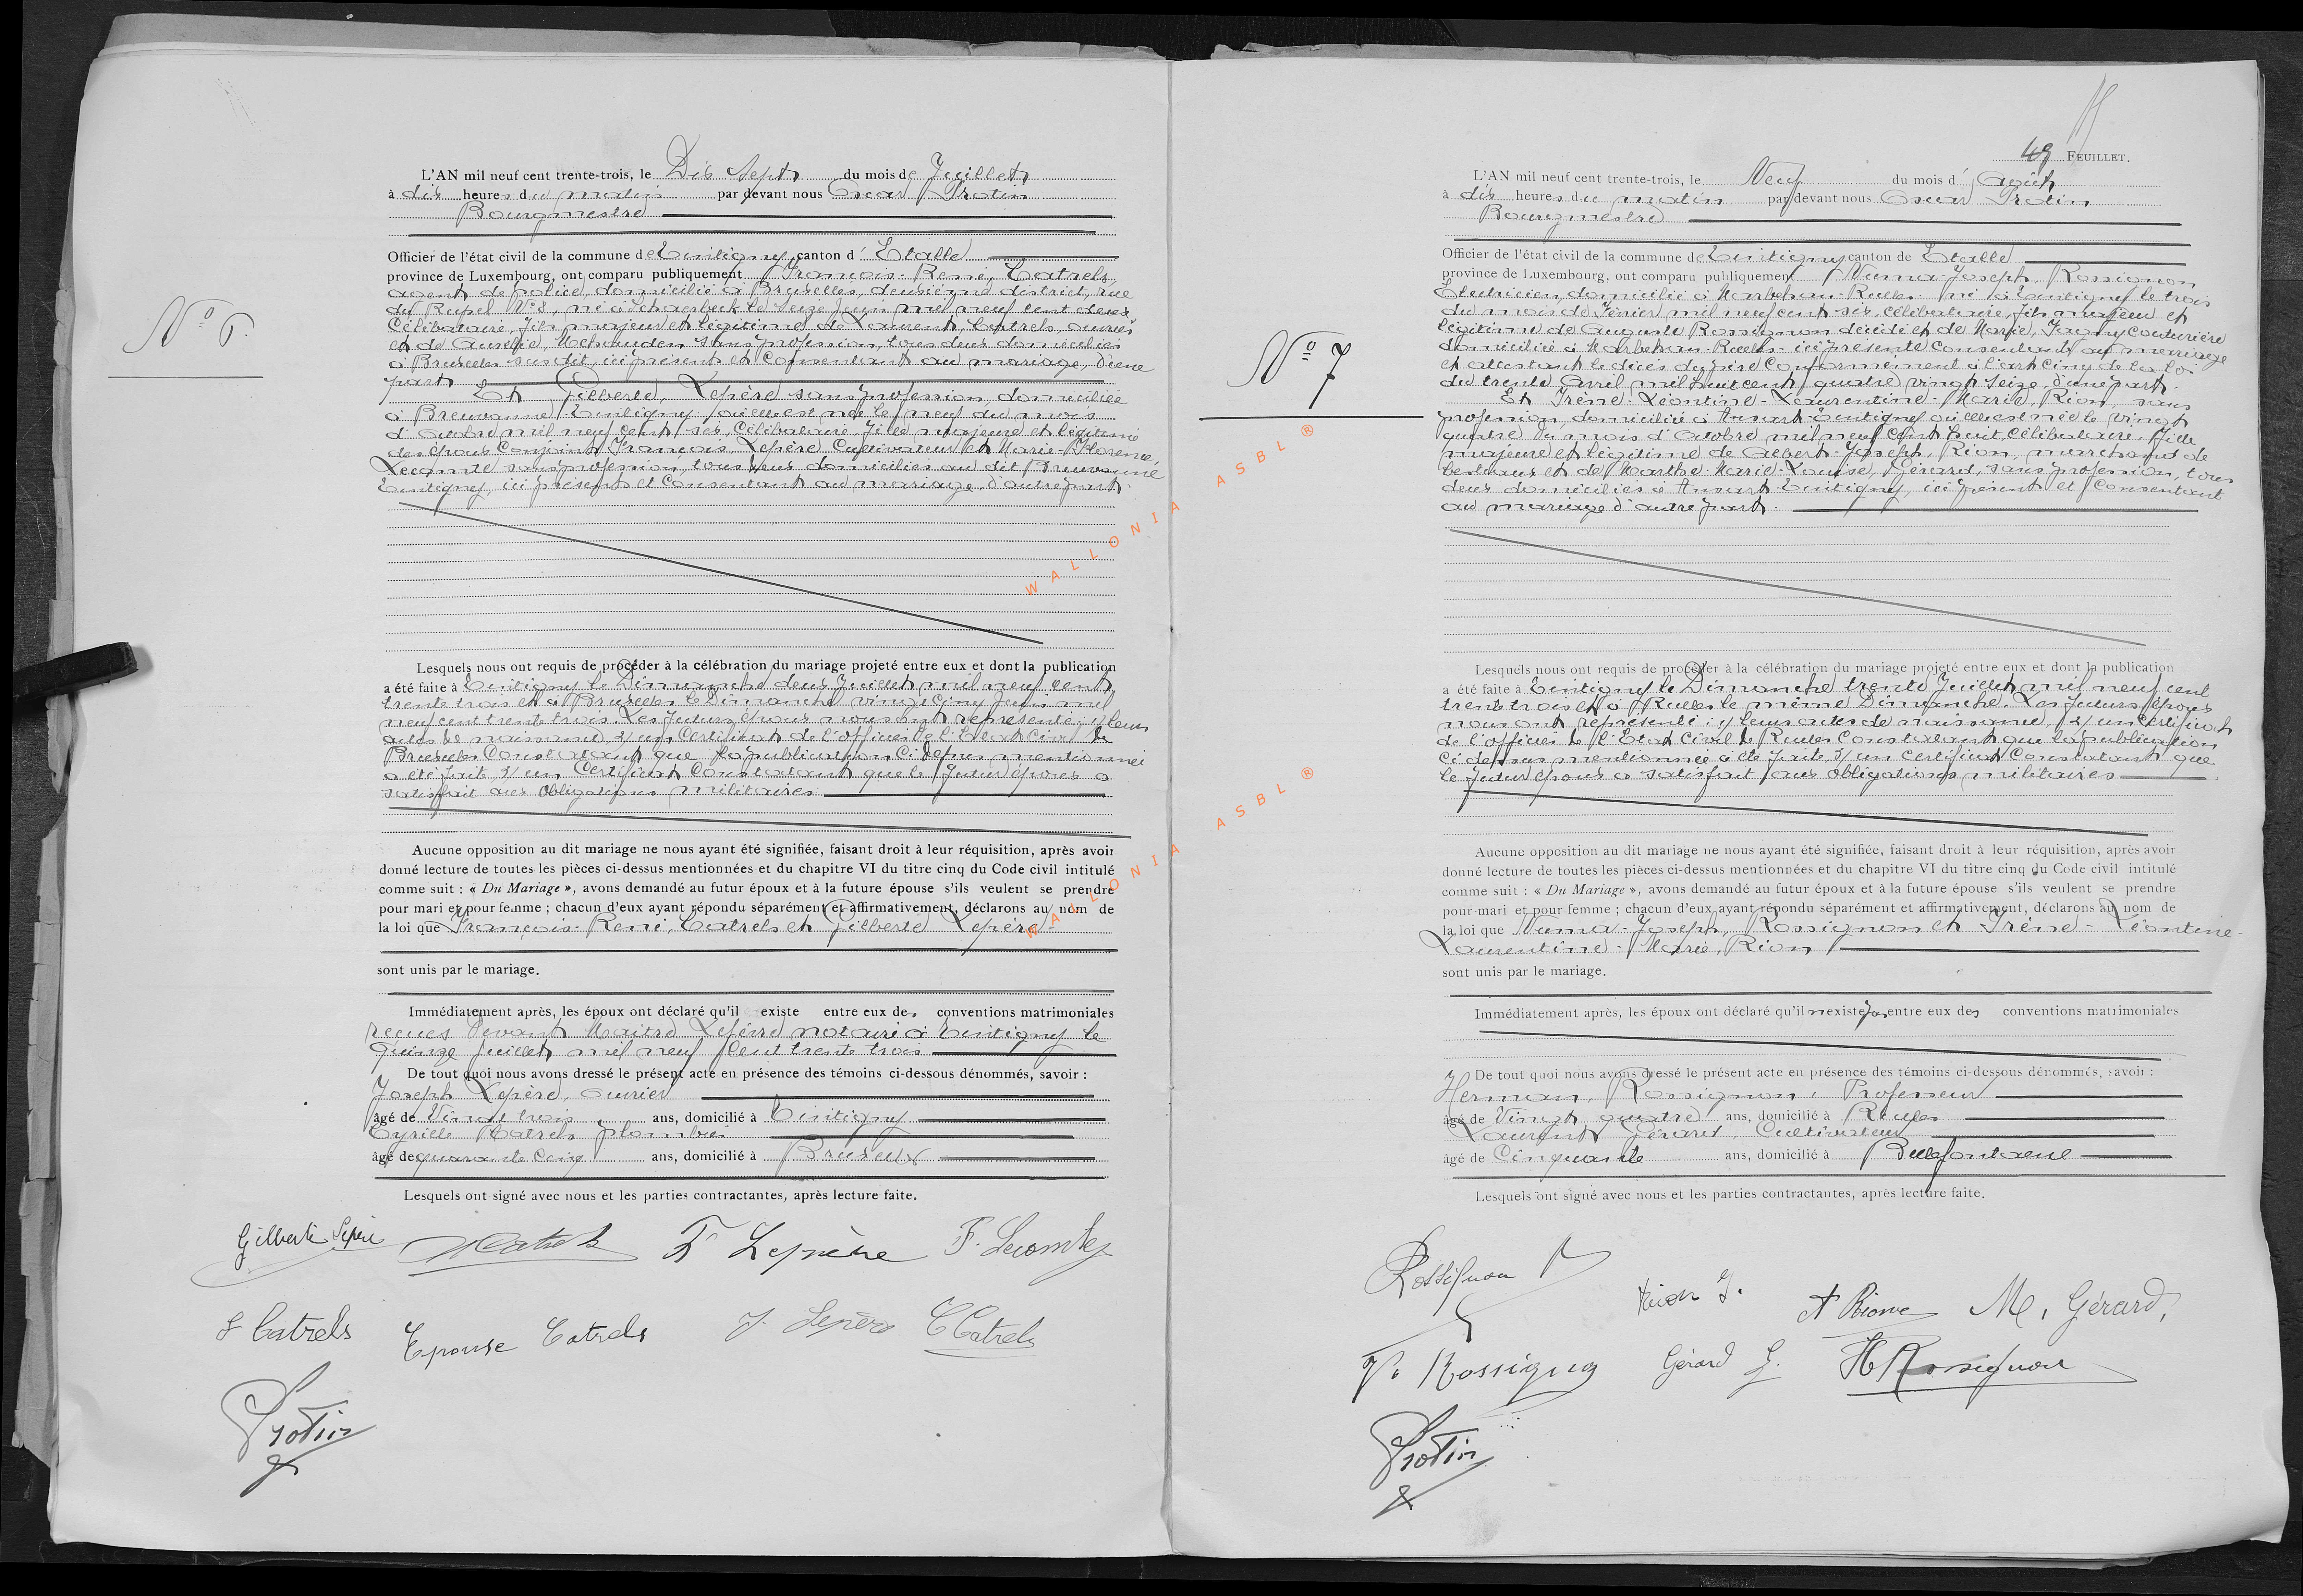 N° 6.
L'AN mil neuf cent trente-trois, le Dix Sept du mois de Juillet
à dix heures du matin par devant nous Oscar Protin
Bourgmestre
Officier de l'état civil de la commune de Tintigny canton d' Etalle
province de Luxembourg, ont comparu publiquement François-René, Catrels
agent de police, domicilié à Bruxelles, deuxième district, rue
du Rupel N°8, né à Schaerbeck le Seize Juin mil neuf cent deux
Célibataire, fils majeur et légitime de Laurent, Catrels, ouvrier
et de Aurélie, sans profession, tous deux domiciliés
à Bruxelles susdit, ici présent et consentant au mariage, d'une
part
Et Gilberte, Lepère sans profession, domiciliée
à Breuvanne Tintigny où elle est née le neuf du mois
d'octobre mil neuf cent six, Célibataire, fille majeure et légitime
des époux conjoints François Lepère Cultivateur et Marie-Florence,
Lecomte sans profession, tous deux domiciliés au dit Breuvanne
Tintigny, ici présent et consentant au mariage, d'autre part.
Lesquels nous ont requis de procéder à la célébration du mariage projeté entre eux et dont la publication
a été faite à Tintigny le Dimanche deux Juillet mil neuf cent
trente trois et à Bruxelles le Dimanche vingt cinq Juin mil
neuf cent trente trois. Les futurs époux nous ont représenté: 1/ leurs
actes de naissance 2/ un Certificat de l'officier de l'Etat Civil de
Bruxelles Constatant que la publication Ci dessus mentionnée
a été faite 3/ un Certificat Constatant que le futur époux a
satisfait aux obligations militaires
Aucune opposition au dit mariage ne nous ayant été signifiée, faisant droit à leur réquisition, après avoir
donné lecture de toutes les pièces ci-dessus mentionnées et du chapitre VI du titre cinq du Code civil intitulé
comme suit : « Du Mariage », avons demandé au futur époux et à la future épouse s'ils veulent se prendre
pour mari et pour femme ; chacun d'eux ayant répondu séparément et affirmativement, déclarons au nom de
la loi que François-René, Catrels et Gilberte Lepère
sont unis par le mariage.
Immédiatement après, les époux ont déclaré qu'il existe entre eux des conventions matrimoniales
reçues devant Maître Lepère notaire à Tintigny le
quinze juillet mil neuf cent trente trois
De tout quoi nous avons dressé le présent acte en présence des témoins ci-dessous dénommés, savoir :
Joseph Lepère, ouvrier
âgé de Vingt trois ans, domicilié à Tintigny
Cyrille Catrels plombier
âgé de quarante cinq ans, domicilié à Bruxelles
Lesquels ont signé avec nous et les parties contractantes, après lecture faite.
Gilberte Lepère Catrels F Lepère F. Lecomte
L Catrels Epouse Catrels J. Lepère C Catrels
Protin
49 FEUILLET.
N° 7
L'AN mil neuf cent trente-trois, le Neuf du mois d' Août
à dix heures du matin par devant nous Oscar Protin
Bourgmestre
Officier de l'état civil de la commune de Tintigny canton de Etalle
province de Luxembourg, ont comparu publiquement Numa-Joseph, Rossignon
Electricien, domicilié à Marbehan-Rulles né à Tintigny le trois
du mois de Février mil neuf cent six, célibataire, fils majeur et
légitime de Auguste Rossignon décédé et de Marie, Jagny couturière
domiciliée à Marbehan-Rulles ici présente consentant au mariage
et attestant le décès du père Conformément à l'art cinq de la loi
du trente Avril mil huit cent quatre vingt seize, d'une part.
Et Irène-Léontine-Laurentine-Marie, Rion, sans
profession, domiciliée à Ansart-Tintigny où elle est née le vingt
quatre du mois d'Octobre mil neuf cent huit, Célibataire, fille
majeure et légitime de Albert-Joseph, Rion, marchand de
bestiaux et de Marthe-Marie-Louise, Gérard, sans profession, tous
deux domiciliés à Ansart-Tintigny, ici présent et Consentant
au mariage d'autre part.
Lesquels nous ont requis de procéder à la célébration du mariage projeté entre eux et dont la publication
a été faite à Tintigny le Dimanche trente Juillet mil neuf cent
trente trois et à Rulles le même Dimanche. Les futurs époux
nous ont représenté : 1/ leurs actes de naissance 2/ un Certificat
de l'officier de l'Etat Civil de Rulles Constatant que la publication
Ci dessus mentionnée a été faite 3/ un certificat Constatant que
le futur époux a satisfait aux obligations militaires
Aucune opposition au dit mariage ne nous ayant été signifiée, faisant droit à leur réquisition, après avoir
donné lecture de toutes les pièces ci-dessus mentionnées et du chapitre VI du titre cinq du Code civil intitulé
comme suit : « Du Mariage », avons demandé au futur époux et à la future épouse s'ils veulent se prendre
pour mari et pour femme ; chacun d'eux ayant répondu séparément et affirmativement, déclarons au nom de
la loi que Numa-Joseph, Rossignon et Irène-Léontine-
Laurentine-Marie, Rion
sont unis par le mariage.
Immédiatement après, les époux ont déclaré qu'il n'existe pas entre eux des conventions matrimoniales
De tout quoi nous avons dressé le présent acte en présence des témoins ci-dessous dénommés, savoir :
Herman, Rossignon, Professeur
âgé de Vingt quatre ans, domicilié à Rulles
Laurent Gérard, Cultivateur
âgé de Cinquante ans, domicilié à Bellefontaine
Lesquels ont signé avec nous et les parties contractantes, après lecture faite.
Rossignon N
Rion I. A Rion M. Gérard,
Rossignon Gérard L. H Rossignon
Protin
WALLONIA ASBL ®
WALLONIA ASBL ®